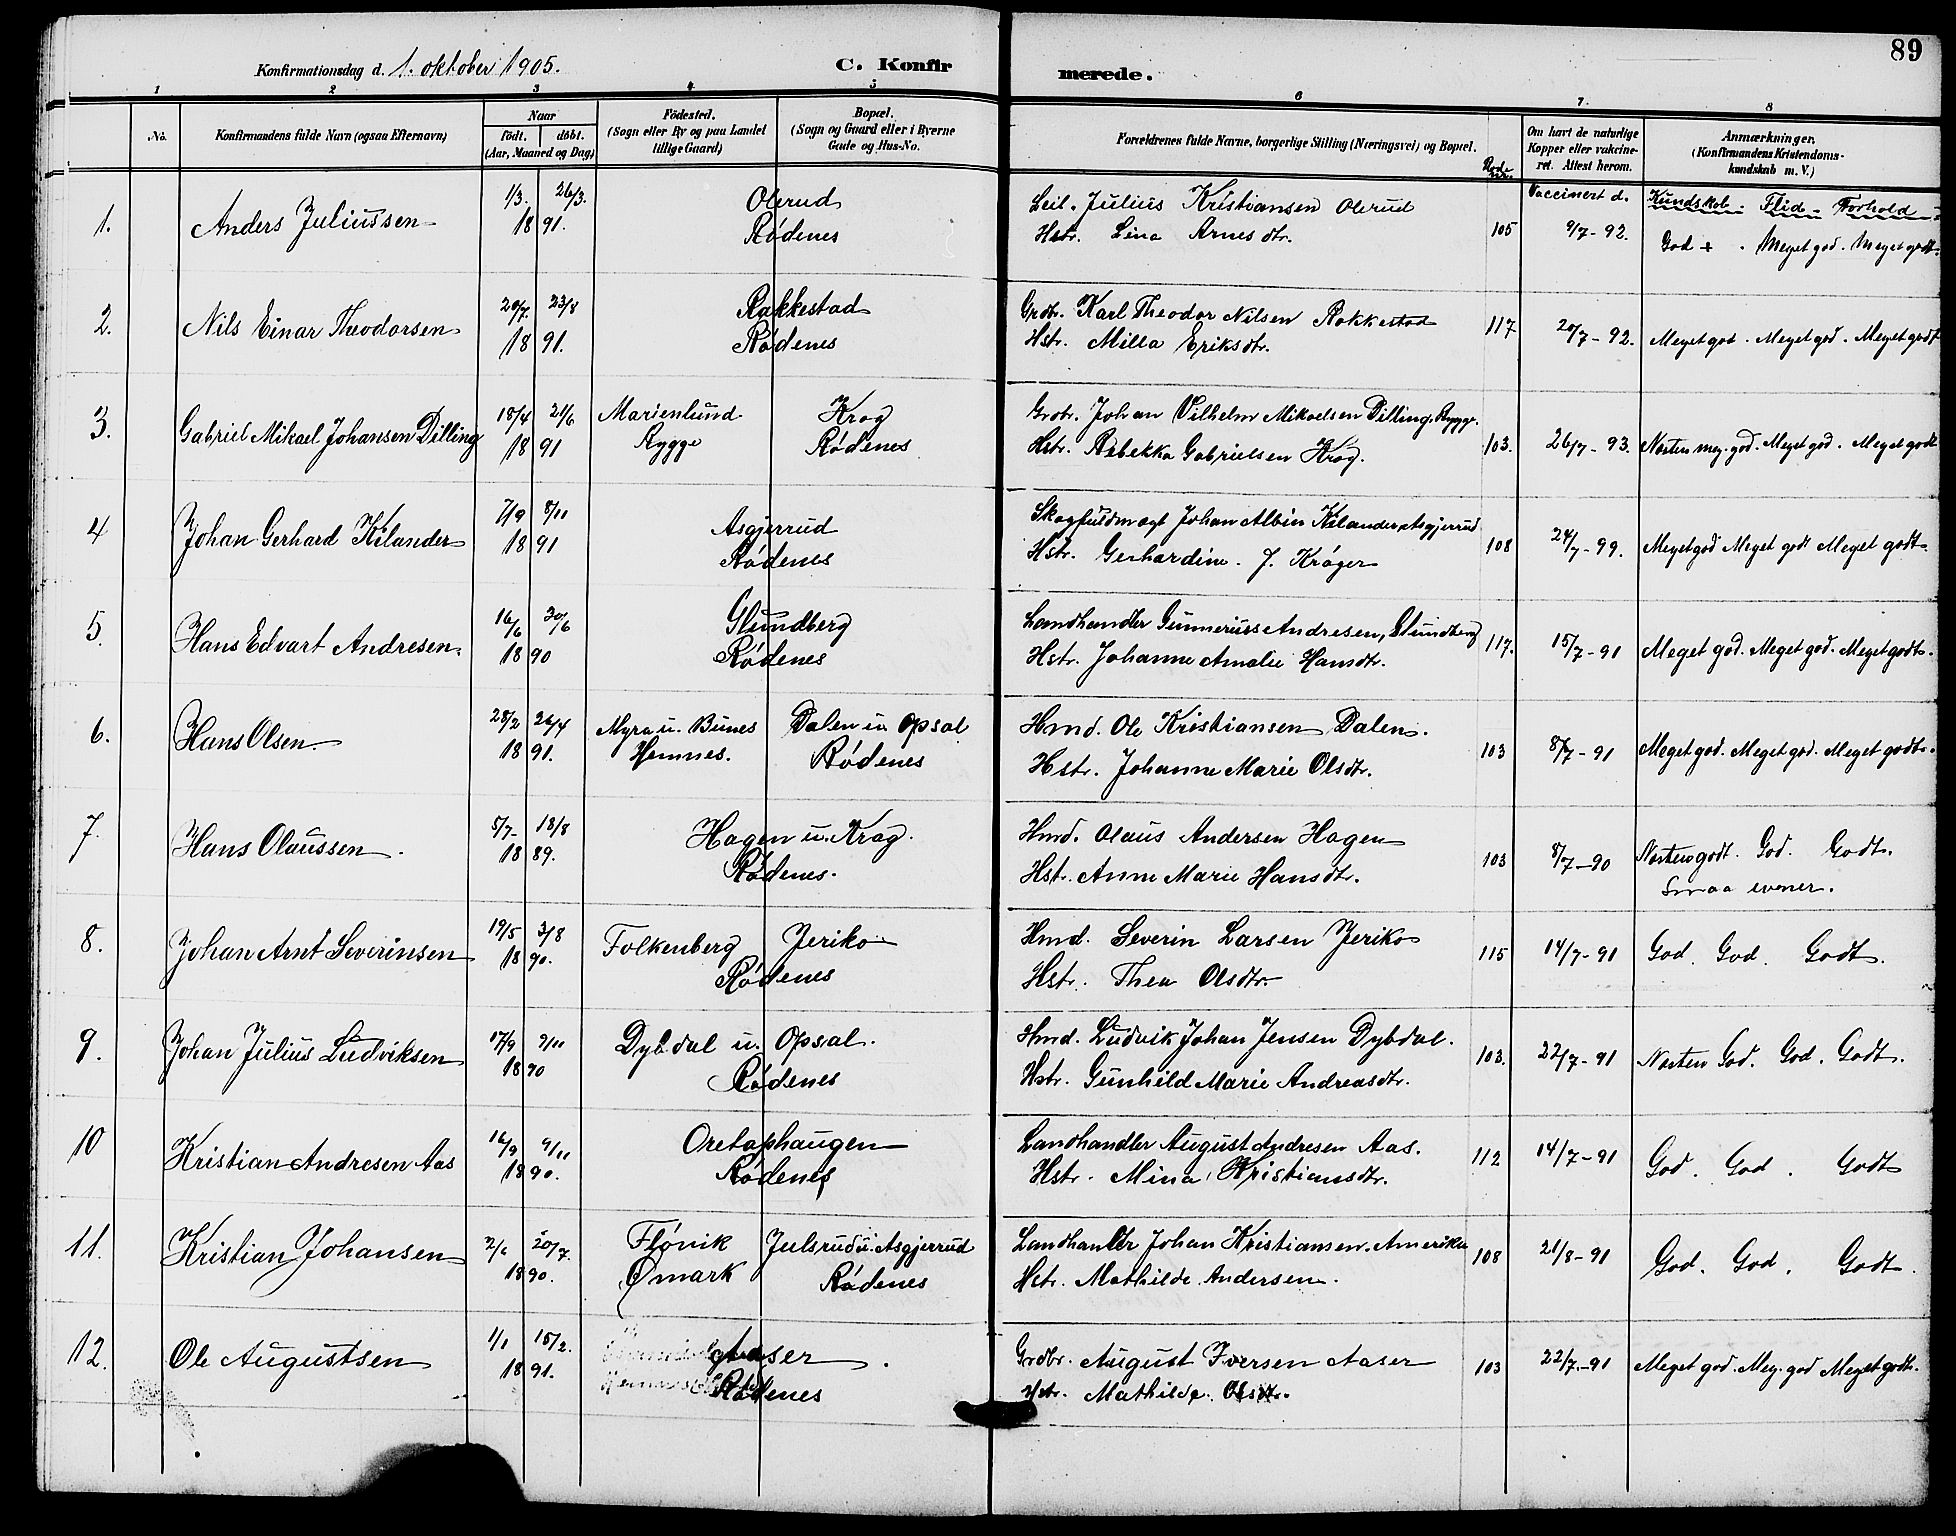 89
Konfirmationsdag d. 1. oktober 1905.
C. Konfirmerede.
1 2 3 4 5 6 7. 8
No.
Konfirmandens fulde Navn (ogsaa Efternavn)
Naar
födt. döbt.
(Aar, Maaned og Dag)
Födested.
(Sogn eller By og paa Landet
tillige Gaard)
Bopæl.
(Sogn og Gaard eller i Byerne
Gade og Hus-No.
Forældrenes fulde Navne, borgerlige Stilling (Næringsvei) og Bopæl.
Om havt de naturlige
Kopper eller vakcine-
ret. Attest herom.
Anmærkninger.
(Konfirmandens Kristendoms-
kundskab m. V.)
Vaccinert d. Kundskab. Flid. Forhold
1. Anders Juliussen 1/3. 26/3. 1891. Olerud
Rødenes
Leil. Julius Kristiansen Olerud
Hstr. Lina Arnesdtr. 105 9/7-92. God + . Meget god. Meget godt.
2. Nils Einar Theodorsen 20/7. 23/8 1891. Rakkestad
Rødenes
Grdbr. Karl Theodor Nilsen Rakkestad
Hstr. Milla Eriksdtr. 117 20/7-92. Meget god. Meget god. Meget godt
3. Gabriel Mikael Johansen Dilling 18/4 21/6 1891 Marienlund Krog
Rygge Rødenes
Grdbr. Johan Vilhelm Mikaelsen Dilling, Rygge.
Hstr. Rebekka Gabrielsen Krog. 103. 26/7-93. Næsten meg. god. Meget god. Meget godt
4 Johan Gerhard Kilander 7/9 8/11 1891 Asgjerrud
Rødenes
Skogfuldmægt Johan Albin Kilander, Asgjerrud
Hstr. Gerhardine J. Krøger 108 24/7-99. Meget god Meget godt Meget godt.
5. Hans Edvart Andresen. 16/6 30/6 1890 Slundberg
Rødenes
Landhandler Gunnerius Andresen, Slundberg
Hstr. Johanne Amalie Hansdtr. 117. 15/7-91 Meget god. Meget god. Meget godt.
6. Hans Olsen 28/2 26/4 1891. Myra u. Bunes Dalen u. Opsal
Hemnes. Rødenes
Hmd. Ole Kristiansen Dalen.
Hstr. Johanne Marie Olsdtr. 103 8/7-91 Meget god. Meget god. Meget godt.
7. Hans Olaussen. 5/7- 18/8 1889. Hagen u. Krog.
Rødenes.
Hmd. Olaus Andersen Hagen
Hstr. Anne Marie Hansdtr. 103 8/7-90 Næsten godt. God. Godt.
Smaa evner.
8. Johan Arnt Severinsen 19/5 3/8 1890. Folkenberg Jeriko
Rødenes
Hmd. Severin Larsen Jeriko
Hstr. Thea Olsdtr. 115 14/7-91 God. God. Godt.
9. Johan Julius Ludviksen 17/9 9/11 1890 Dybdal u. Opsal.
Rødenes
Hmd. Ludvik Johan Jensen Dybdal.
Hstr. Gunhild Marie Andreasdtr. 103. 22/7-91 Næsten God. God. Godt.
10 Kristian Andresen Aas 16/9 9/11 1890. Oretaphaugen
Rødenes
Landhandler August Andresen Aas.
Hstr. Mina Kristiansdtr. 112 14/7-91 God. God. Godt
11. Kristian Johansen 2/6 20/7. 1890. Fløvik Julsrud u. Asgjerrud
Ømark Rødenes
Landhandler Johan Kristiansen. Amerika
Hstr. Mathilde Andersen. 108 21/8-91 God. God. Godt.
12. Ole Augustsen 1/1 15/2. 1891. Aaser
Rødenes
Grdbr. August Iversen Aaser
Hstr. Mathilde Olsdtr. 103 22/7-91 Meget god. Meg. god Meget godt.